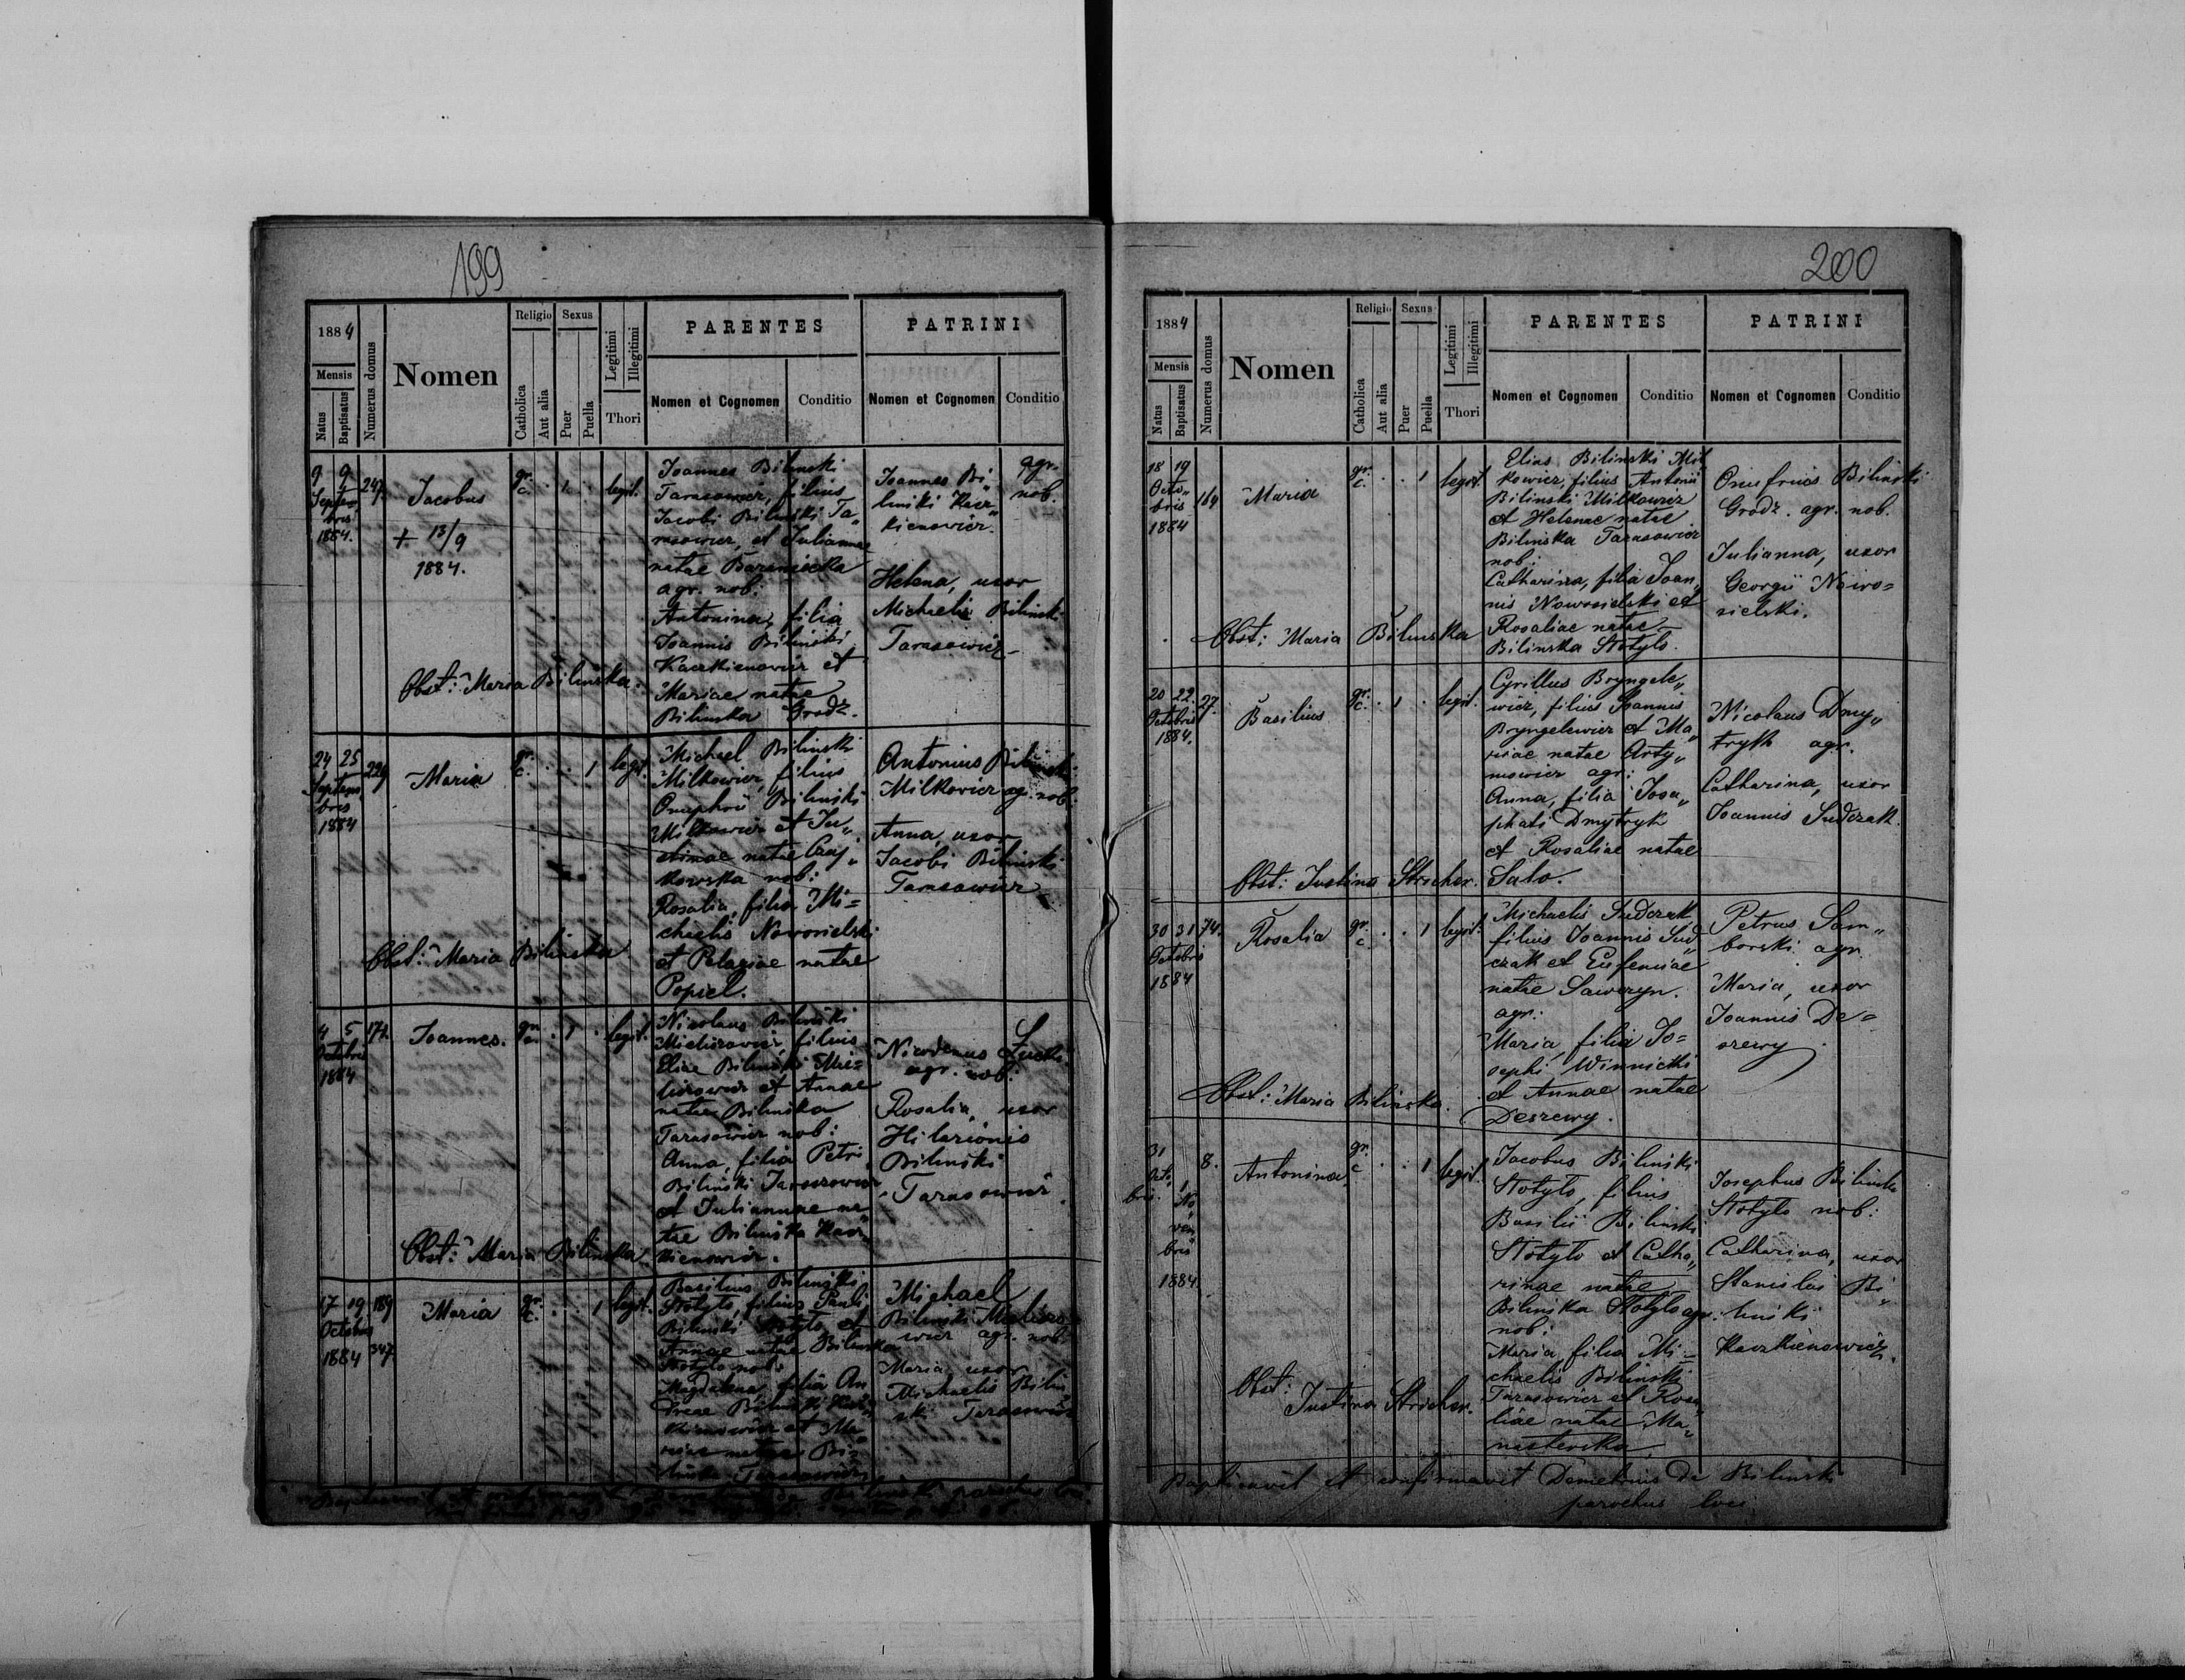 199
1884
Mensis
Natus
Baptisatus
Numerus domus
Nomen
Religio
Catholica
Aut alia
Sexus
Puer
Puella
Legitimi
Illegitimi
Thori
PARENTES
Nomen et Cognomen
Conditio
PATRINI
Nomen et Cognomen
Conditio
9 9
Septem
bris
1884.
247.
Jacobus
+ 13/9
1884.
gr.
c.
. 1. .
legit.
Joannes Bilinski
Tarasowicz, filius
Jacobi Bilinski Ta„
rasowicz, et Juliannae
natae Baraniecka
agr. nob:
Antonina, filia
Joannis Bilinski
Kaczkienowicz et
Mariae natae
Bilinska Grodz.
Joannes Bi„
linski Kacz„
kienowicz.
agr.
nob.
Helena, uxor
Michaelis Bilinski
Tarasowicz
Obst: Maria Bilinska.
24 25
Septem
bris
1884
229
Maria
gr.
c.
. . 1
legit.
Michael Bilinski
Milkowicz, filius
Onuphrii Bilinski
Milkowicz et Ju„
stinae natae Czaj„
kowska nob:
Rosalia, filia Mi=
chaelis Nowosielski
et Pelagiae natae
Popiel.
Antonius Bilinski
Milkowicz agr. nob.
Anna, uxor
Jacobi Bilinski
Tarasowicz
Obst: Maria Bilinska
4 5
Octobris
1884
172.
Joannes.
gr.
c.
. 1 .
legit.
Nicolaus Bilinski
filius
Eliae Bilinski
et Annae
natae Bilinska
Tarasowicz nob:
Anna, filia Petri
Bilinski Tarasowicz
et Juliannae na
tae Bilinska Kacz
kienowicz.
Nicodemus Łucki
agr. nob.
Rosalia, uxor
Hilarionis
Bilinski
Tarasowicz.
Obst: Maria Bilinska
17 19
Octobris
1884
189
347
Maria
gr.
c.
. . 1
legit.
Basilius Bilinski
Stotyto, filius Pauli
Bilinski Stotyto et
Annae natae Bilinska
Stotyto nob:
Magdalena, filia An
dreae Bilinski Kacz
kienowicz et Ma„
riae natae Bi„
linska Tarasowicz
Michael
Bilinski
wicz agr. nob:
Maria uxor
Michaelis Bilin
ski Tarasowicz
Baptisavit et confirmavit Bilinski parochus loci.
200
1884
Mensis
Natus
Baptisatus
Numerus domus
Nomen
Religio
Catholica
Aut alia
Sexus
Puer
Puella
Legitimi
Illegitimi
Thori
PARENTES
Nomen et Cognomen
Conditio
PATRINI
Nomen et Cognomen
Conditio
18 19
Octo„
bris
1884
164
Maria
gr.
c.
. . 1
legit.
Elias Bilinski Mil
kowicz, filius Antonii
Bilinski Milkowicz
et Helenae natae
Bilinska Tarasowicz
nob:
Catharina, filia Joan„
nis Nowosielski et
Rosaliae natae
Bilinska Stotyto.
Onufrius Bilinski
Grodz. agr. nob.
Julianna, uxor
Georgii Nowo=
sielski.
Obst: Maria Bilinska
20 22.
Octobris
1884.
27.
Basilius
gr.
c.
. 1 .
legit.
Cyrillus Bryngele„
wicz, filius Joannis
Bryngelewicz et Ma„
riae natae Arty„
mowicz agr:
Anna, filia Josa„
phati Dmytryk
et Rosaliae natae
Sato.
Nicolaus Dmy„
tryk agr.
Catharina, uxor
Joannis Sudczak.
Obst: Justina Stricher.
30 31
Octobris
1884
74.
Rosalia
gr.
c.
. . 1
legit.
Michaelis Sudczak
filius Joannis Sud„
czak et Eufemiae
natae Saweryn.
agr:
Maria, filia Jo=
sephi Winnicki
et Annae natae
Deszewy.
Petrus Sam„
borski agr.
Maria, uxor
Joannis De=
szewy.
Obst: Maria Bilinska.
31
Octo
bris.
1
No
vem
bris
1884.
8.
Antonina
gr.
c
. . 1
legit.
Jacobus Bilinski
Stotyto, filius
Basilii Bilinski
Stotyto et Catha„
rinae natae
Bilinska Stotyto agr:
nob:
Maria, filia Mi=
chaelis Bilinski
Tarasowicz et Rosa„
liae natae Ma„
nasterska
Josephus Bilinski
Stotyto nob:
Catharina, uxor
Stanislai Bi„
linski
Kaczkienowicz.
Obst:
Justina Stricher.
Baptisavit et confirmavit Demetrius de Bilinski
parochus loci.